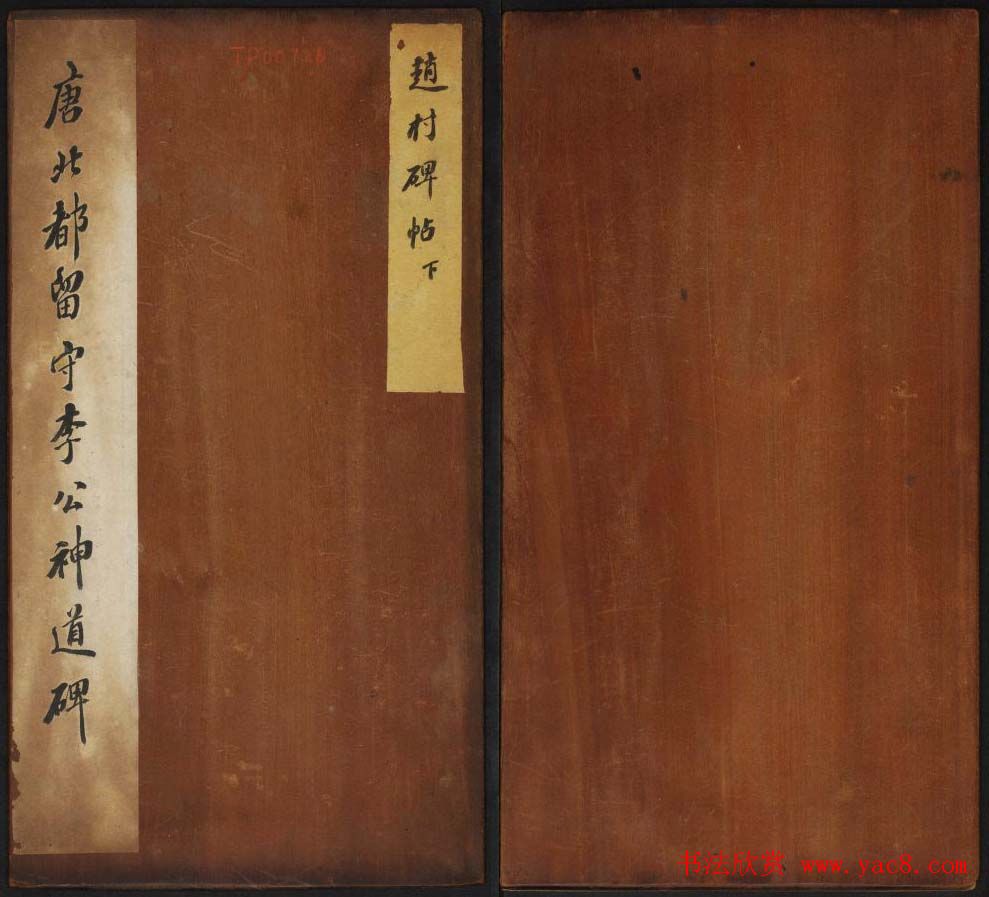 唐北都留守李公神道碑
趙村碑帖下
TP00728
书法欣赏 www.yac8.com